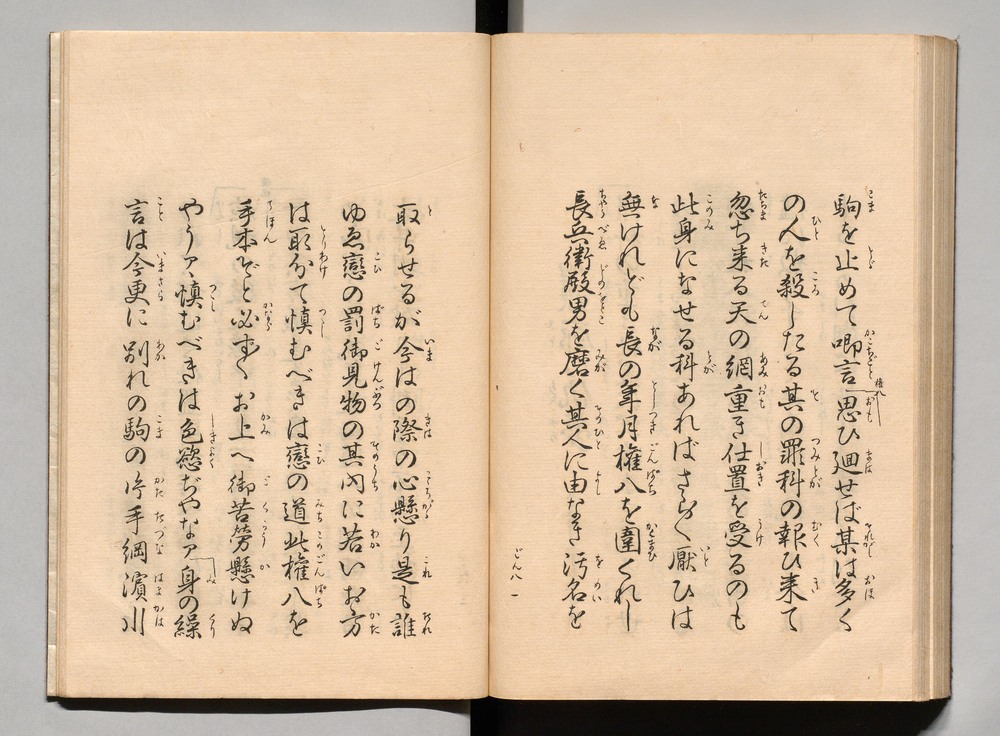 駒を止めて喞言思ひ廻せば某は多く
の人を殺したる其の罪科の報ひ来て
忽ち来る天の網重き仕置を受るのも
此身になせる科あればさら〳〵厭ひは
無けれども長の年月権八を圍くれし
長兵衛殿男を磨く其人に由なき汚名を
ごん八 一
取らせるが今はの際の心懸り是も誰
ゆゑ戀の罰御見物の其内に若いお方
は取分て慎むべきは戀の道此権八を
手本ぞと必ず〳〵お上へ御苦労懸けぬ
やうア、慎むべきは色慾ぢやなア身の繰
言は今更に別れの駒の片手綱濵川